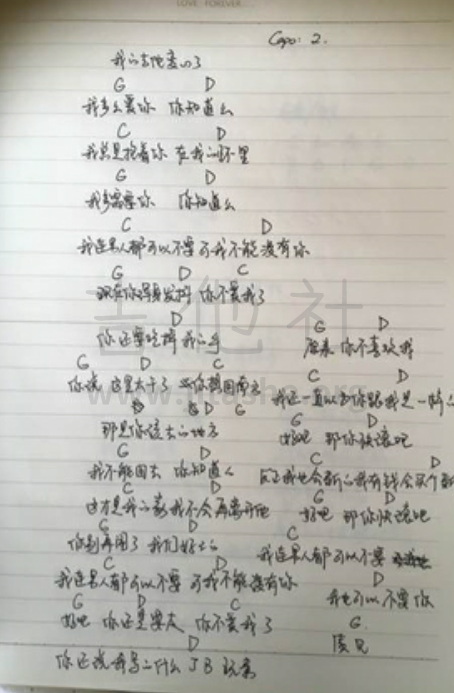 LOVE FOREVER
Capo: 2.
我的吉他变心了
G D
我多么爱你 你知道么
C D
我总是抱着你 在我的怀里
G D
我多需要你 你知道么
C D
我连男人都可以不要 可我不能没有你
G D C
现在你浑身发抖 你不爱我了
D
你还要吃掉我的手
G D C
你说 这里太干了 你想回南方
D G
那是你该去的地方
G D
我不能回去 你知道么
C D
这才是我的家 我不会再离开他
G D
你别再闹了 我们好好的
C D
我连男人都可以不要 可我不能没有你
G D C
好吧 你还是要走 你不爱我了
D
你还说我写的什么JB玩意
G D
原来 你不喜欢我
C D
我还一直以为你跟我是一伙
G D
好吧 那你快滚吧
C D
反正我也会新的我有钱会买个新
G D
好吧 那你快滚吧
C
我连男人都可以不要
D
我也可以不要你
G.
吉他社
www.jitashe.org